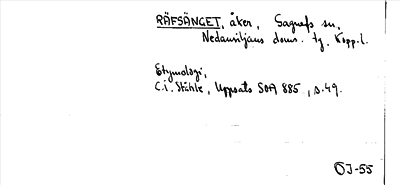 RÄFSÄNGET, åker, Sagnefs sn,
Nedansiljans doms. tg, Kopp. l.
Etymologi,
C.I. Ståhle, Uppsats SOÄ 885, s. 49.
ÖJ-55